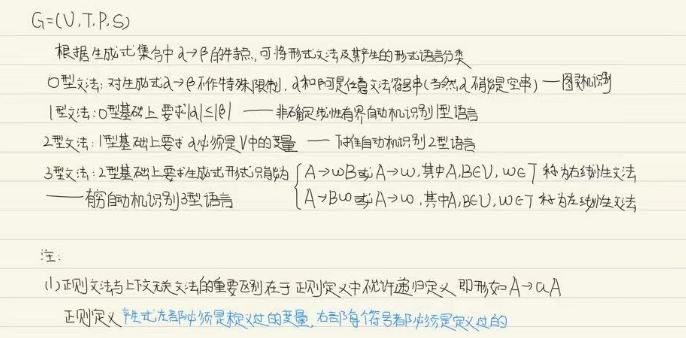 G=(V,T,P,S)
根据生成式集合中α→β的特点,可将形式文法及其产生的形式语言分类
0型文法:对生成式α→β不作特殊限制,α和β可是任意文法符号串(当然,α不能是空串) —图灵机识别
1型文法:0型基础上要求|α|≤|β| ——非确定线性有界自动机识别1型语言
2型文法:1型基础上要求α必须是V中的变量 —下推自动机识别2型语言
3型文法:2型基础上要求生成式形式只能为 { A→ωB或A→ω,其中A,B∈V,ω∈T 称为右线性文法
——有穷自动机识别3型语言 A→Bω或A→ω,其中A,B∈V,ω∈T 称为左线性文法
注:
(1)正则文法与上下文无关文法的重要区别在于正则定义中不允许递归定义 即形如A→aA
正则定义产生式左部必须是未定义过的变量,右部每个符号都必须是定义过的